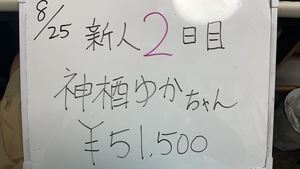 8/25 新人2日目
神楢ゆかちゃん
¥51,500